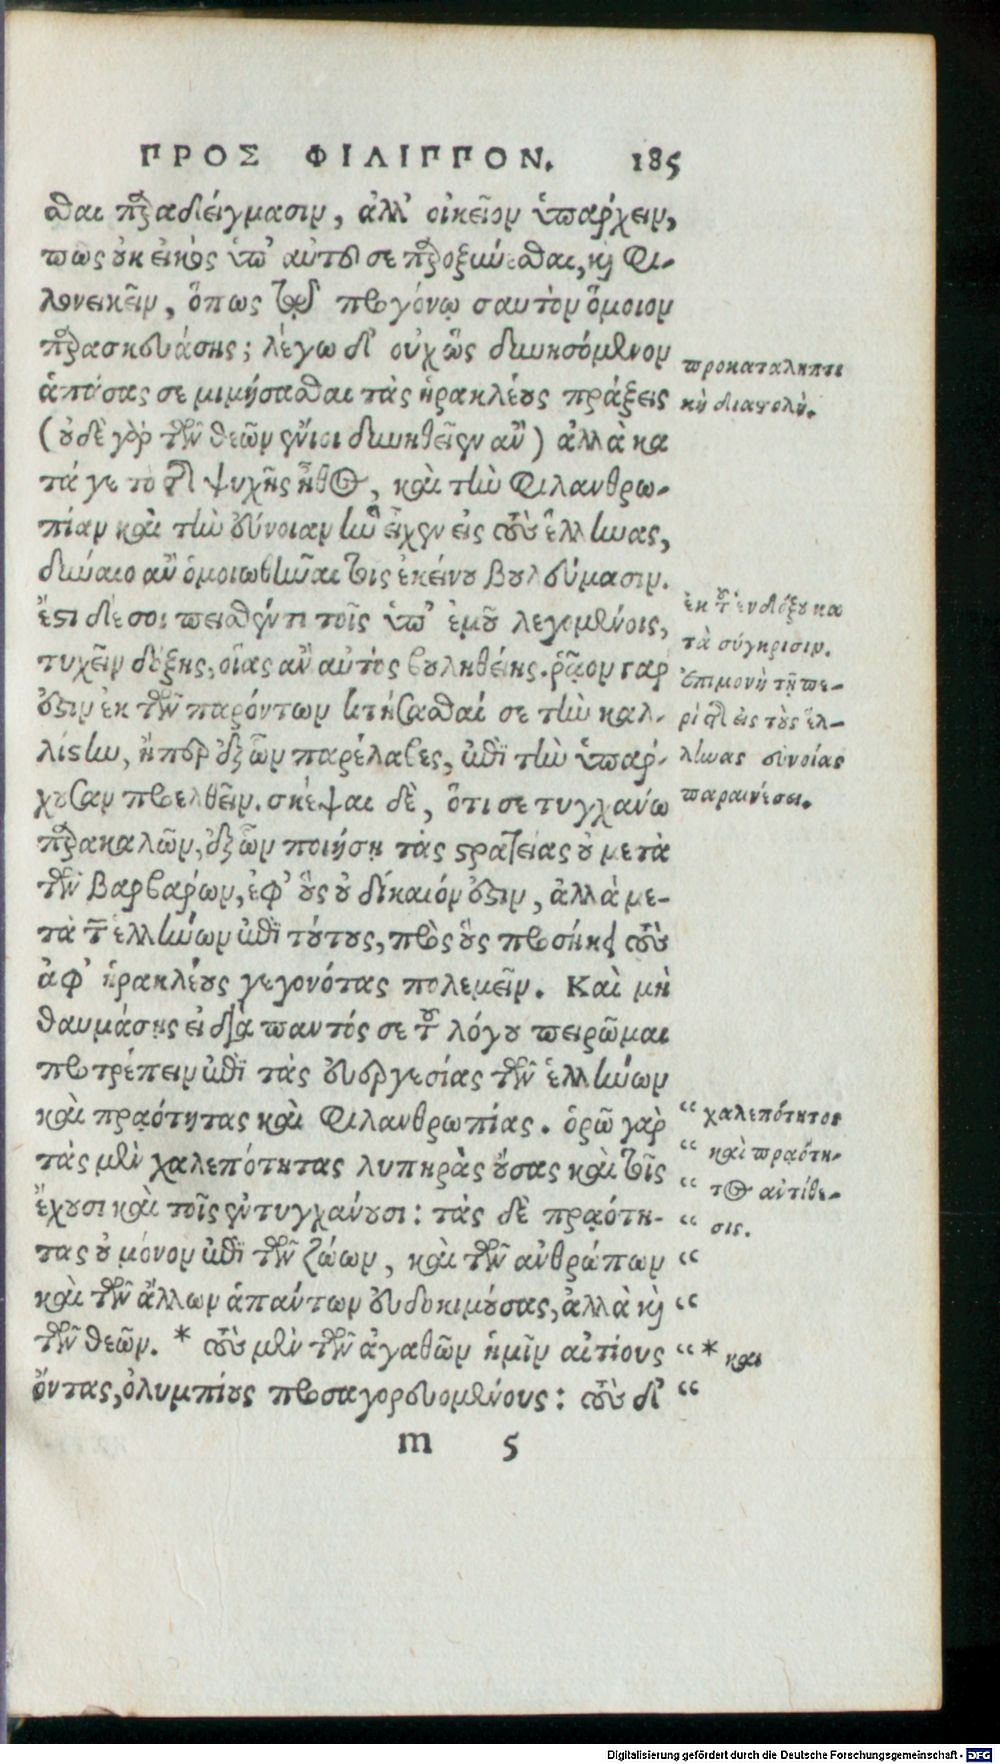 ΠΡΟΣ ΦΙΛΙΠΠΟΝ. 185
σθαι παραδείγμασιν, ἀλλ' οἰκεῖον ὑπάρχειν,
πῶς οὐκ εἰκὸς ὑπ' αὐτοῦ σε παροξύνεσθαι, καὶ φι-
λονεικεῖν, ὅπως τῷ προγόνῳ σαυτὸν ὅμοιον
παρασκευάσῃς; λέγω δ' οὐχ ὡς δυνησόμενον
ἁπάσας σε μιμήσασθαι τὰς ἡρακλέους πράξεις
(οὐδὲ γὰρ τῶν θεῶν ἔνιοι δυνηθεῖεν ἂν) ἀλλὰ κα
τά γε τὸ τῆς ψυχῆς ἦθος, καὶ τὴν φιλανθρω-
πίαν καὶ τὴν εὔνοιαν ἣν εἶχεν εἰς τοὺς ἕλληνας,
δύναιο ἂν ὁμοιωθῆναι τοῖς ἐκείνου βουλεύμασιν.
ἔστι δέ σοι πεισθέντι τοῖς ὑπ' ἐμοῦ λεγομένοις,
τυχεῖν δόξης, οἵας ἂν αὐτὸς βουληθείης. ῥᾷον γαρ
ἐστιν ἐκ τῶν παρόντων κτήσασθαί σε τὴν καλ-
λίστην, ἤπερ ἐξ ὧν παρέλαβες, ἐπὶ τὴν ὑπάρ-
χουσαν προελθεῖν. σκέψαι δὲ, ὅτι σε τυγχάνω
παρακαλῶν, ἐξ ὧν ποιήσῃ τὰς στρατείας οὐ μετὰ
τῶν βαρβάρων, ἐφ' οὓς οὐ δίκαιόν ἐστιν, ἀλλὰ με-
τὰ τῶν ἑλλήνων ἐπὶ τούτους, πρὸς οὓς προσήκει τοὺς
ἀφ' ἡρακλέους γεγονότας πολεμεῖν. Καὶ μὴ
θαυμάσῃς εἰ διὰ παντός σε τοῦ λόγου πειρῶμαι
προτρέπειν ἐπὶ τὰς εὐεργεσίας τῶν ἑλλήνων
καὶ πραότητας καὶ φιλανθρωπίας. ὁρῶ γὰρ
τὰς μὲν χαλεπότητας λυπηρὰς οὔσας καὶ τοῖς
ἔχουσι καὶ τοῖς ἐντυγχάνουσι: τὰς δὲ πραότη-
τας οὐ μόνον ἐπὶ τῶν ζώων, καὶ τῶν ἀνθρώπων
καὶ τῶν ἄλλων ἁπάντων εὐδοκιμούσας, ἀλλὰ καὶ
τῶν θεῶν. * τοὺς μὲν τῶν ἀγαθῶν ἡμῖν αἰτίους
ὄντας, ὀλυμπίους προσαγορευομένους: τοὺς δ'
m 5
προκαταληπτι
κὴ διαστολὴ.
ἐκ τοῦ ἐνδόξου κα
τὰ σύγκρισιν.
Ἐπιμονὴ τῇ πε-
ρὶ τῆς εἰς τοὺς ἕλ-
ληνας εὐνοίας
παραινέσει.
“ χαλεπότητος
“ καὶ πραότη-
“ τος αντίθε-
“ σις.
“
“
“ * και
“